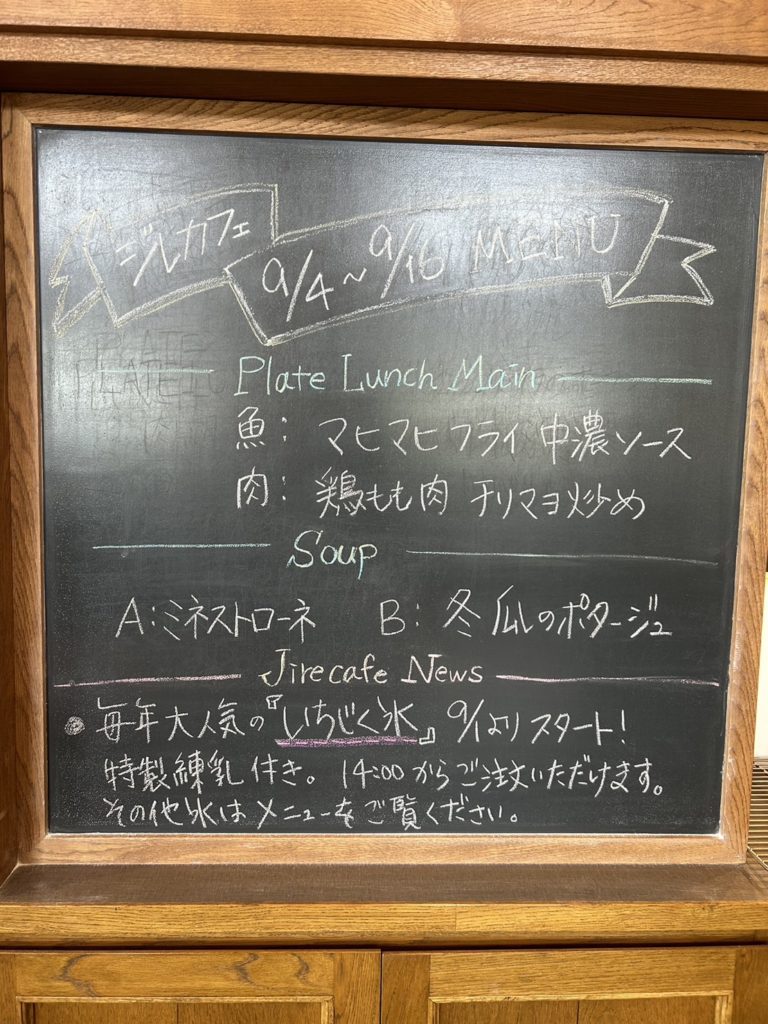 ジルカフェ
9/4~9/16 MENU
Plate Lunch Main
魚: マヒマヒフライ 中濃ソース
肉: 鶏もも肉 チリマヨ炒め
Soup
A:ミネストローネ B: 冬瓜のポタージュ
Jirecafe News
◎ 毎年大人気の『いちじく氷』 9/1よりスタート!
特製練乳付き。 14:00からご注文いただけます。
その他氷はメニューをご覧ください。